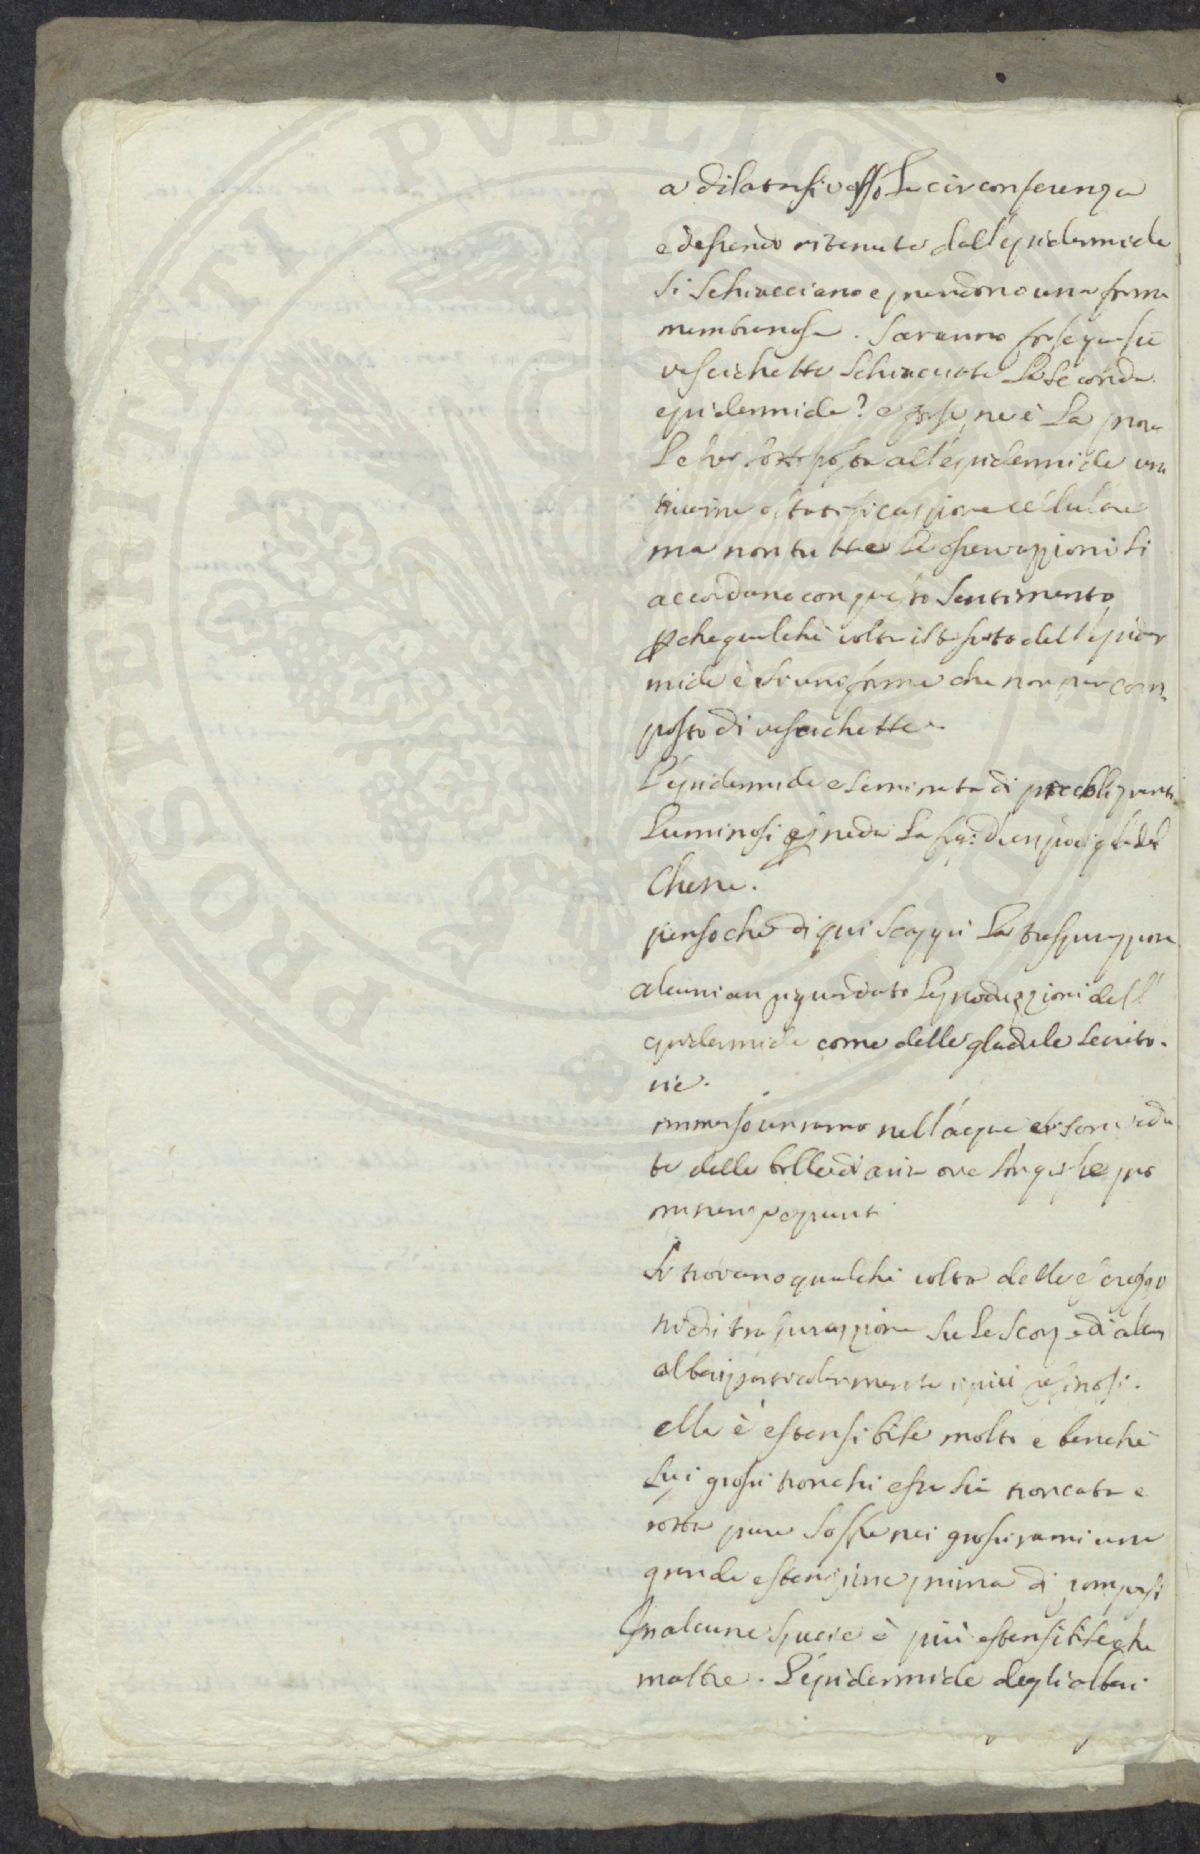 a dilatarsi verso la circonferenza
ed essendo ritenute dall'epidermide
si schiacciano e prendono una forma
membranosa. Saranno forse queste
vescichette schiacciate la seconda
epidermide? e forse ne è la prova
sottoposta all'epidermide una
stratificazione cellulare
ma non tutte le osservazioni si
accordano con questo sentimento
perche qualche volta il tessuto dell'epider
mide è si uniforme che non par com
posto di vescichette
L'epidermide e seminata di piccoli punti
luminosi e ne da la fig: del
Chesne.
penso che di qui scappi la traspirazzione
alcuni an riguardato le produzzioni dell'
epidermide come delle gladule secreto-
rie.
immerso un ramo nell'acqua si sono vedu
te delle bolle di aria ove sorgeste pro
punti
Si trovano qualche volta delle escrezio
ni di traspirazzione su le scorze di alcuni
alberi particolarmente i più resinosi.
ella è estensibile molto e benchè
su i grossi tronchi essa sia troncata e
rotta pure soffre nei grossi rami una
grande estenzione prima di rompersi
In alcune specie è più estensibile che
in altre. L'epidermide degli alberi
PROSPERITATI PVBLICAE